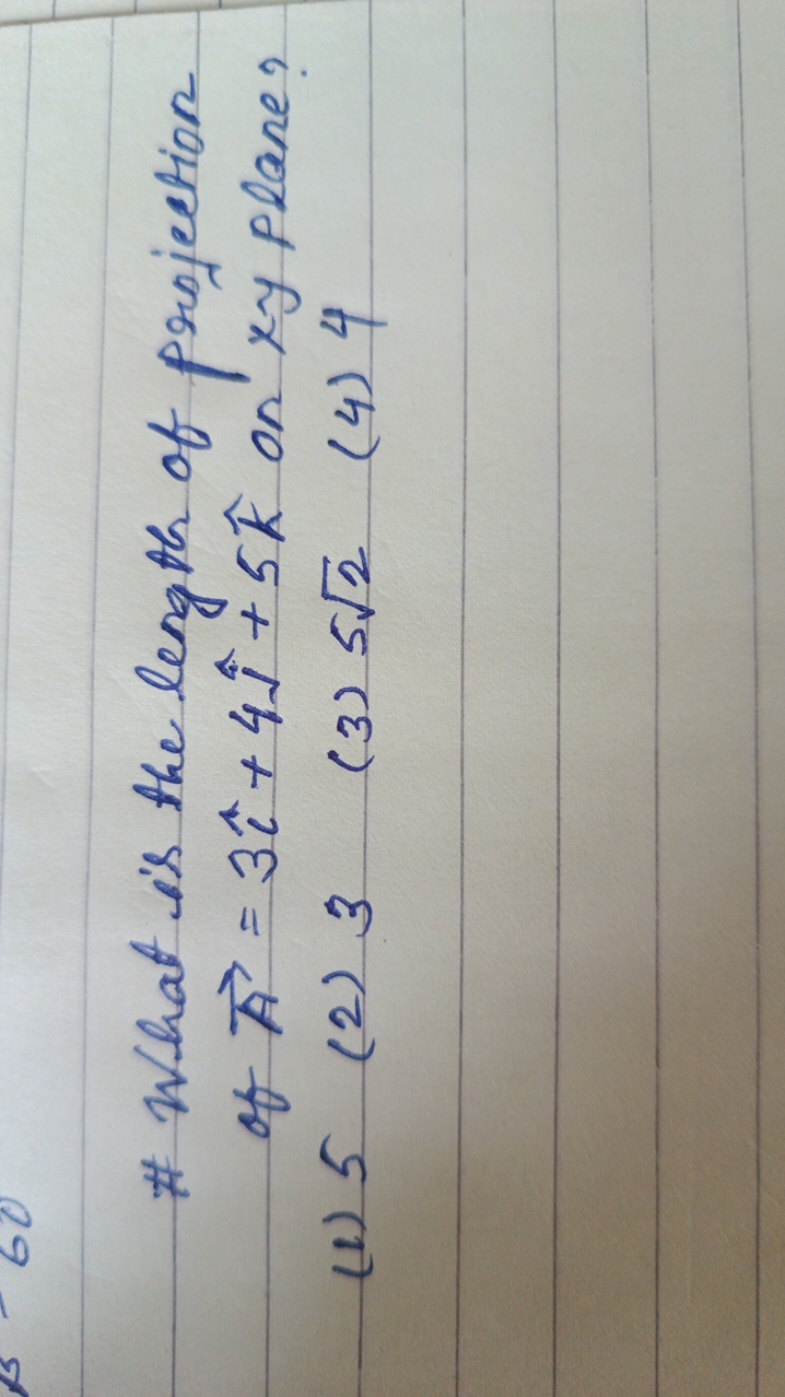 # What is the length of projection
of A⃗ = 3î + 4ĵ + 5k̂ on xy plane?
(1) 5 (2) 3 (3) 5√2 (4) 4